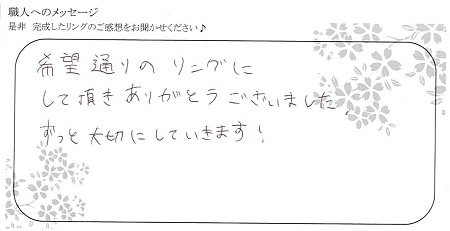 職人へのメッセージ
是非 完成したリングのご感想をお聞かせください♪
希望通りの リングに
して頂きありがとうございました。
ずっと大切にしていきます!